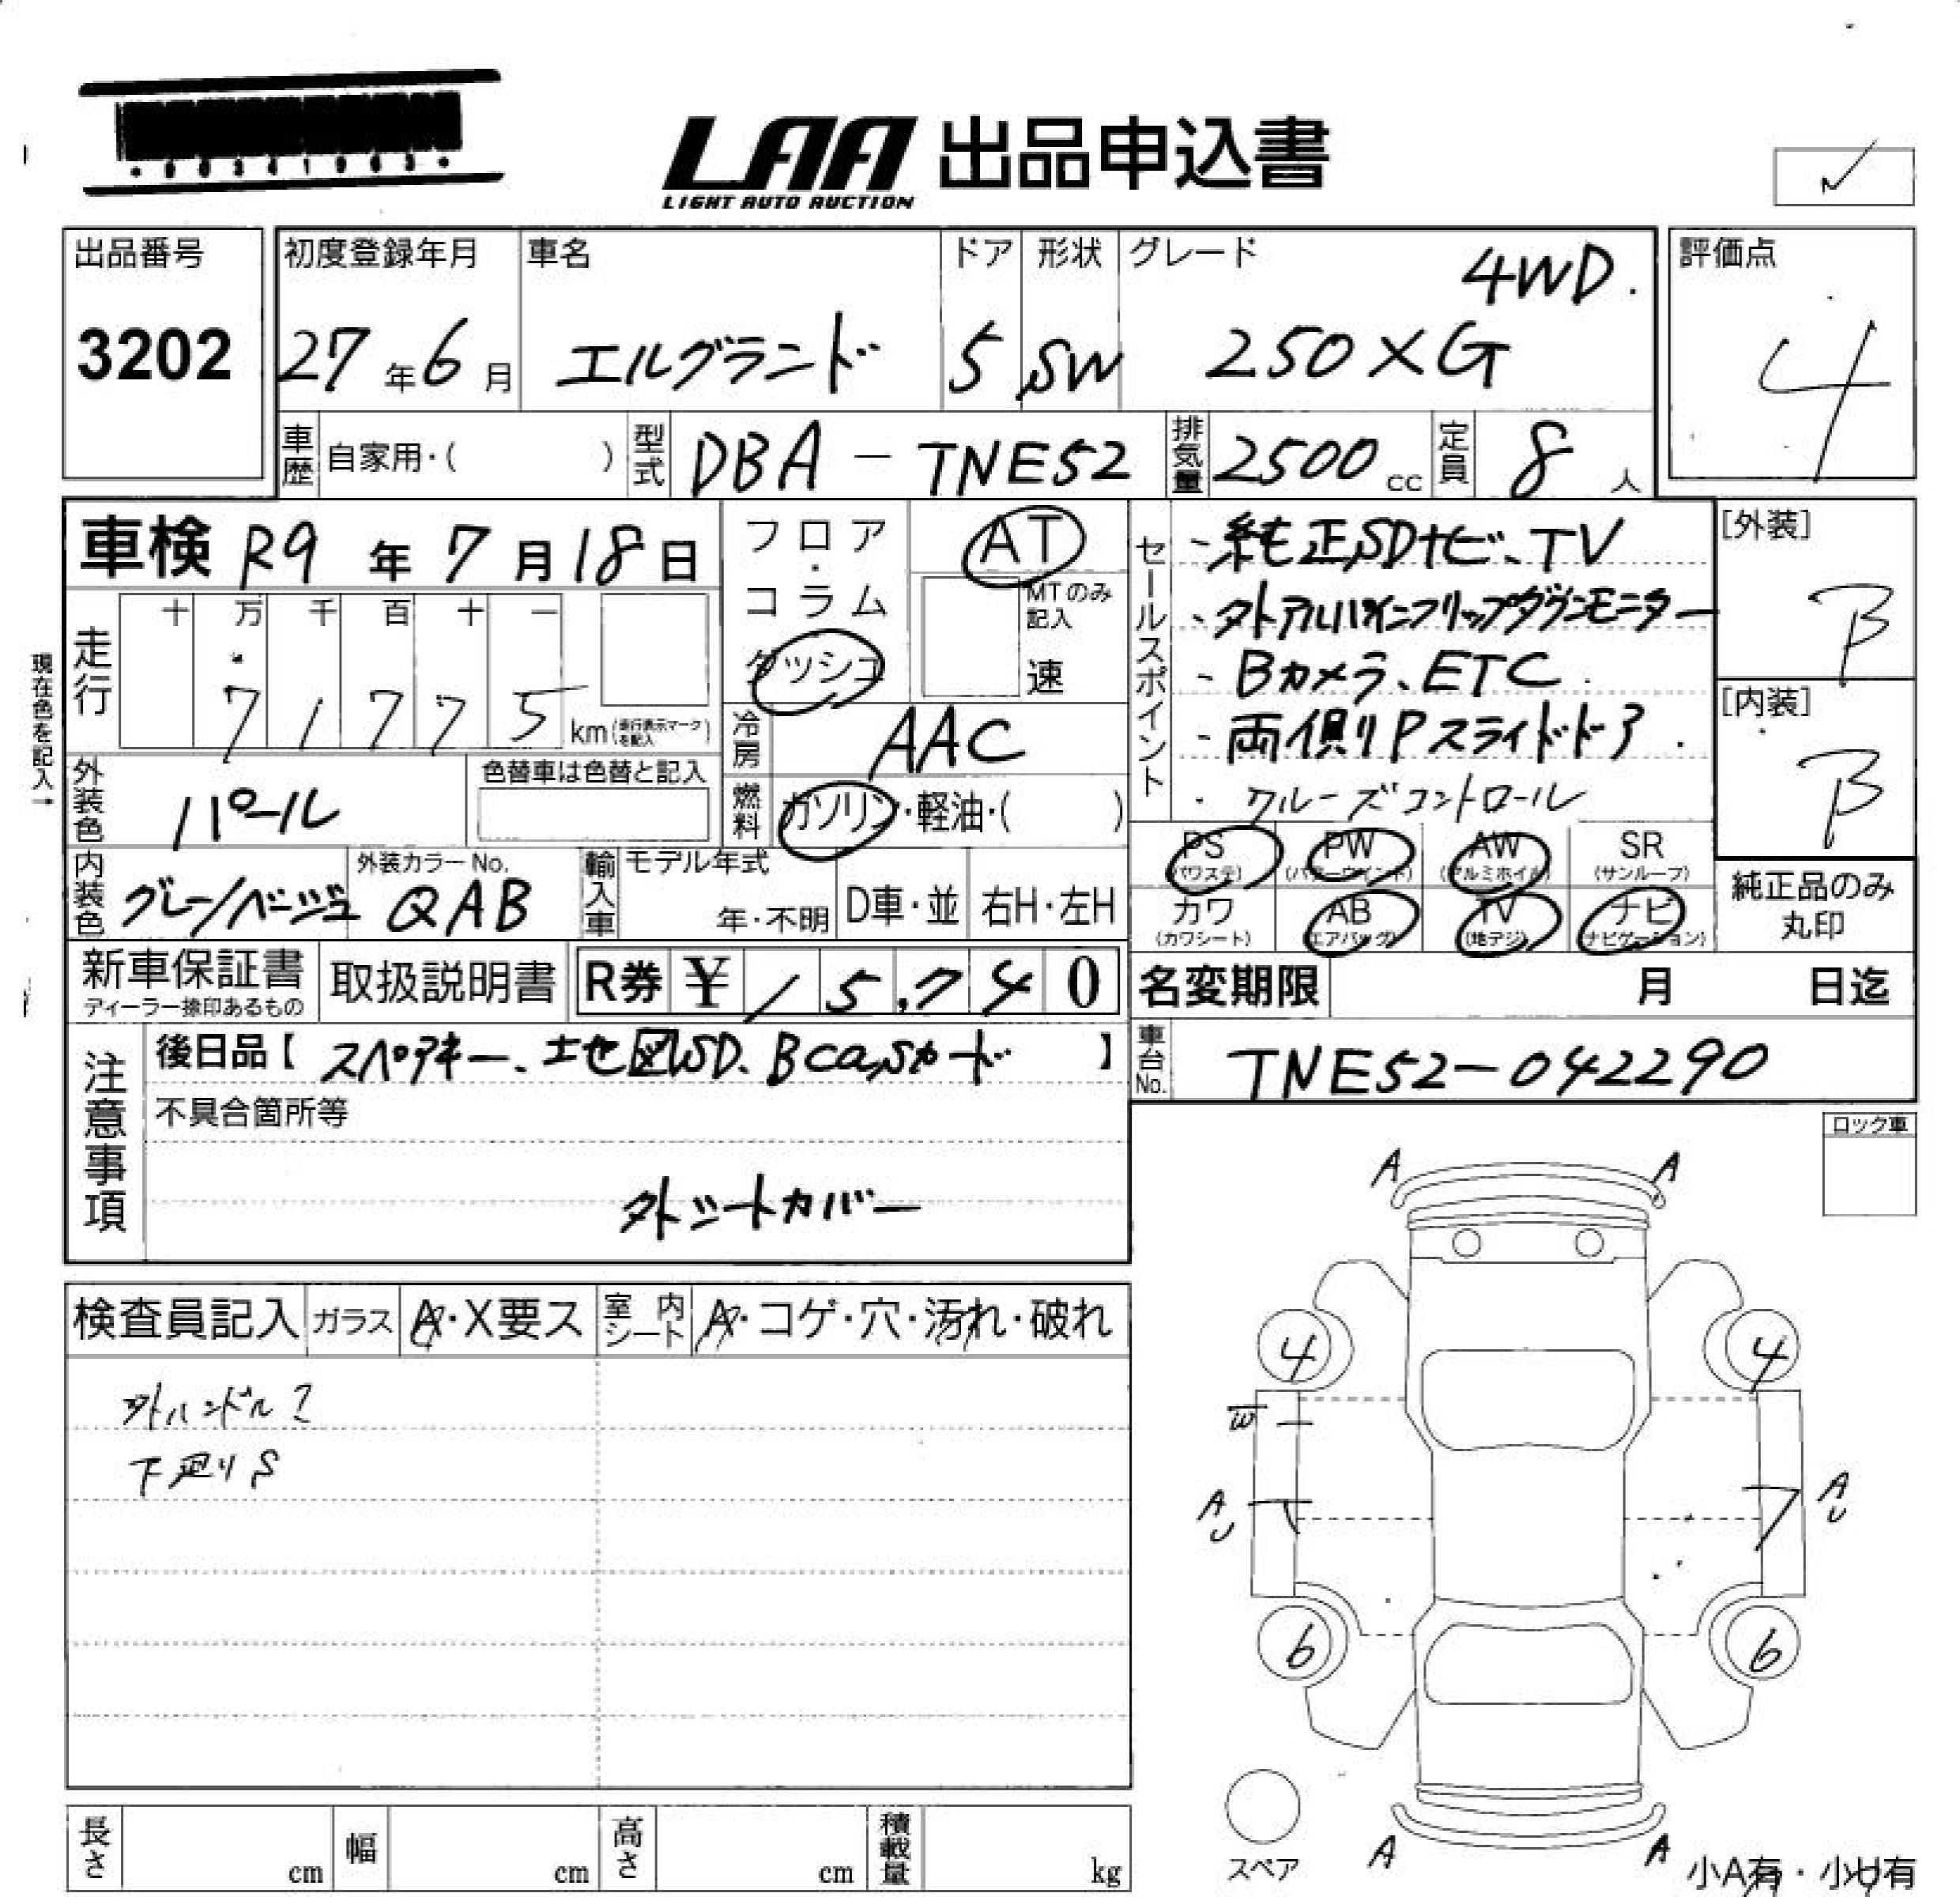 LAA 出品申込書
LIGHT AUTO AUCTION
出品番号
3202
初度登録年月
27年6月
車名
エルグランド
ドア
5
形状
SW
グレード
4WD.
250XG
評価点
4
車歴 自家用・( )
型式 DBA-TNE52
排気量 2500cc
定員 8人
車検 R9年7月18日
フロア・コラム
ダッシュ
AT
MTのみ記入
速
現在色を記入→
走行
十 万 千 百 十 一
71775 km(走行表示マークを記入)
冷房 AAC
燃料 ガソリン・軽油・( )
外装色 パール
色替車は色替と記入
内装色 グレー/ベージュ
外装カラーNo. QAB
輸入車
モデル年式
年・不明
D車・並
右H・左H
セールスポイント
・純正SDナビ、TV
・外アルパインフリップダウンモニター
・Bカメラ、ETC
・両側Pスライドドア
・クルーズコントロール
[外装]
B
[内装]
B
PS (パワステ)
PW (パワーウインド)
AW (アルミホイル)
SR (サンルーフ)
カワ (カワシート)
AB (エアバッグ)
TV (地デジ)
ナビ (ナビゲーション)
純正品のみ
丸印
新車保証書
ディーラー捺印あるもの
取扱説明書
R券 ¥15,740
名変期限 月 日迄
注意事項
後日品【スペアキー、地図SD、Bcasカード】
車台No. TNE52-042290
不具合箇所等
外シートカバー
ロック車
検査員記入
ガラス A・X要ス
室内シート A・コゲ・穴・汚れ・破れ
外ハンドル?
下廻りS
A A
4 4
W
A
U
A
U
6 6
スペア
A A
小A有・小U有
長さ cm
幅 cm
高さ cm
積載量 kg